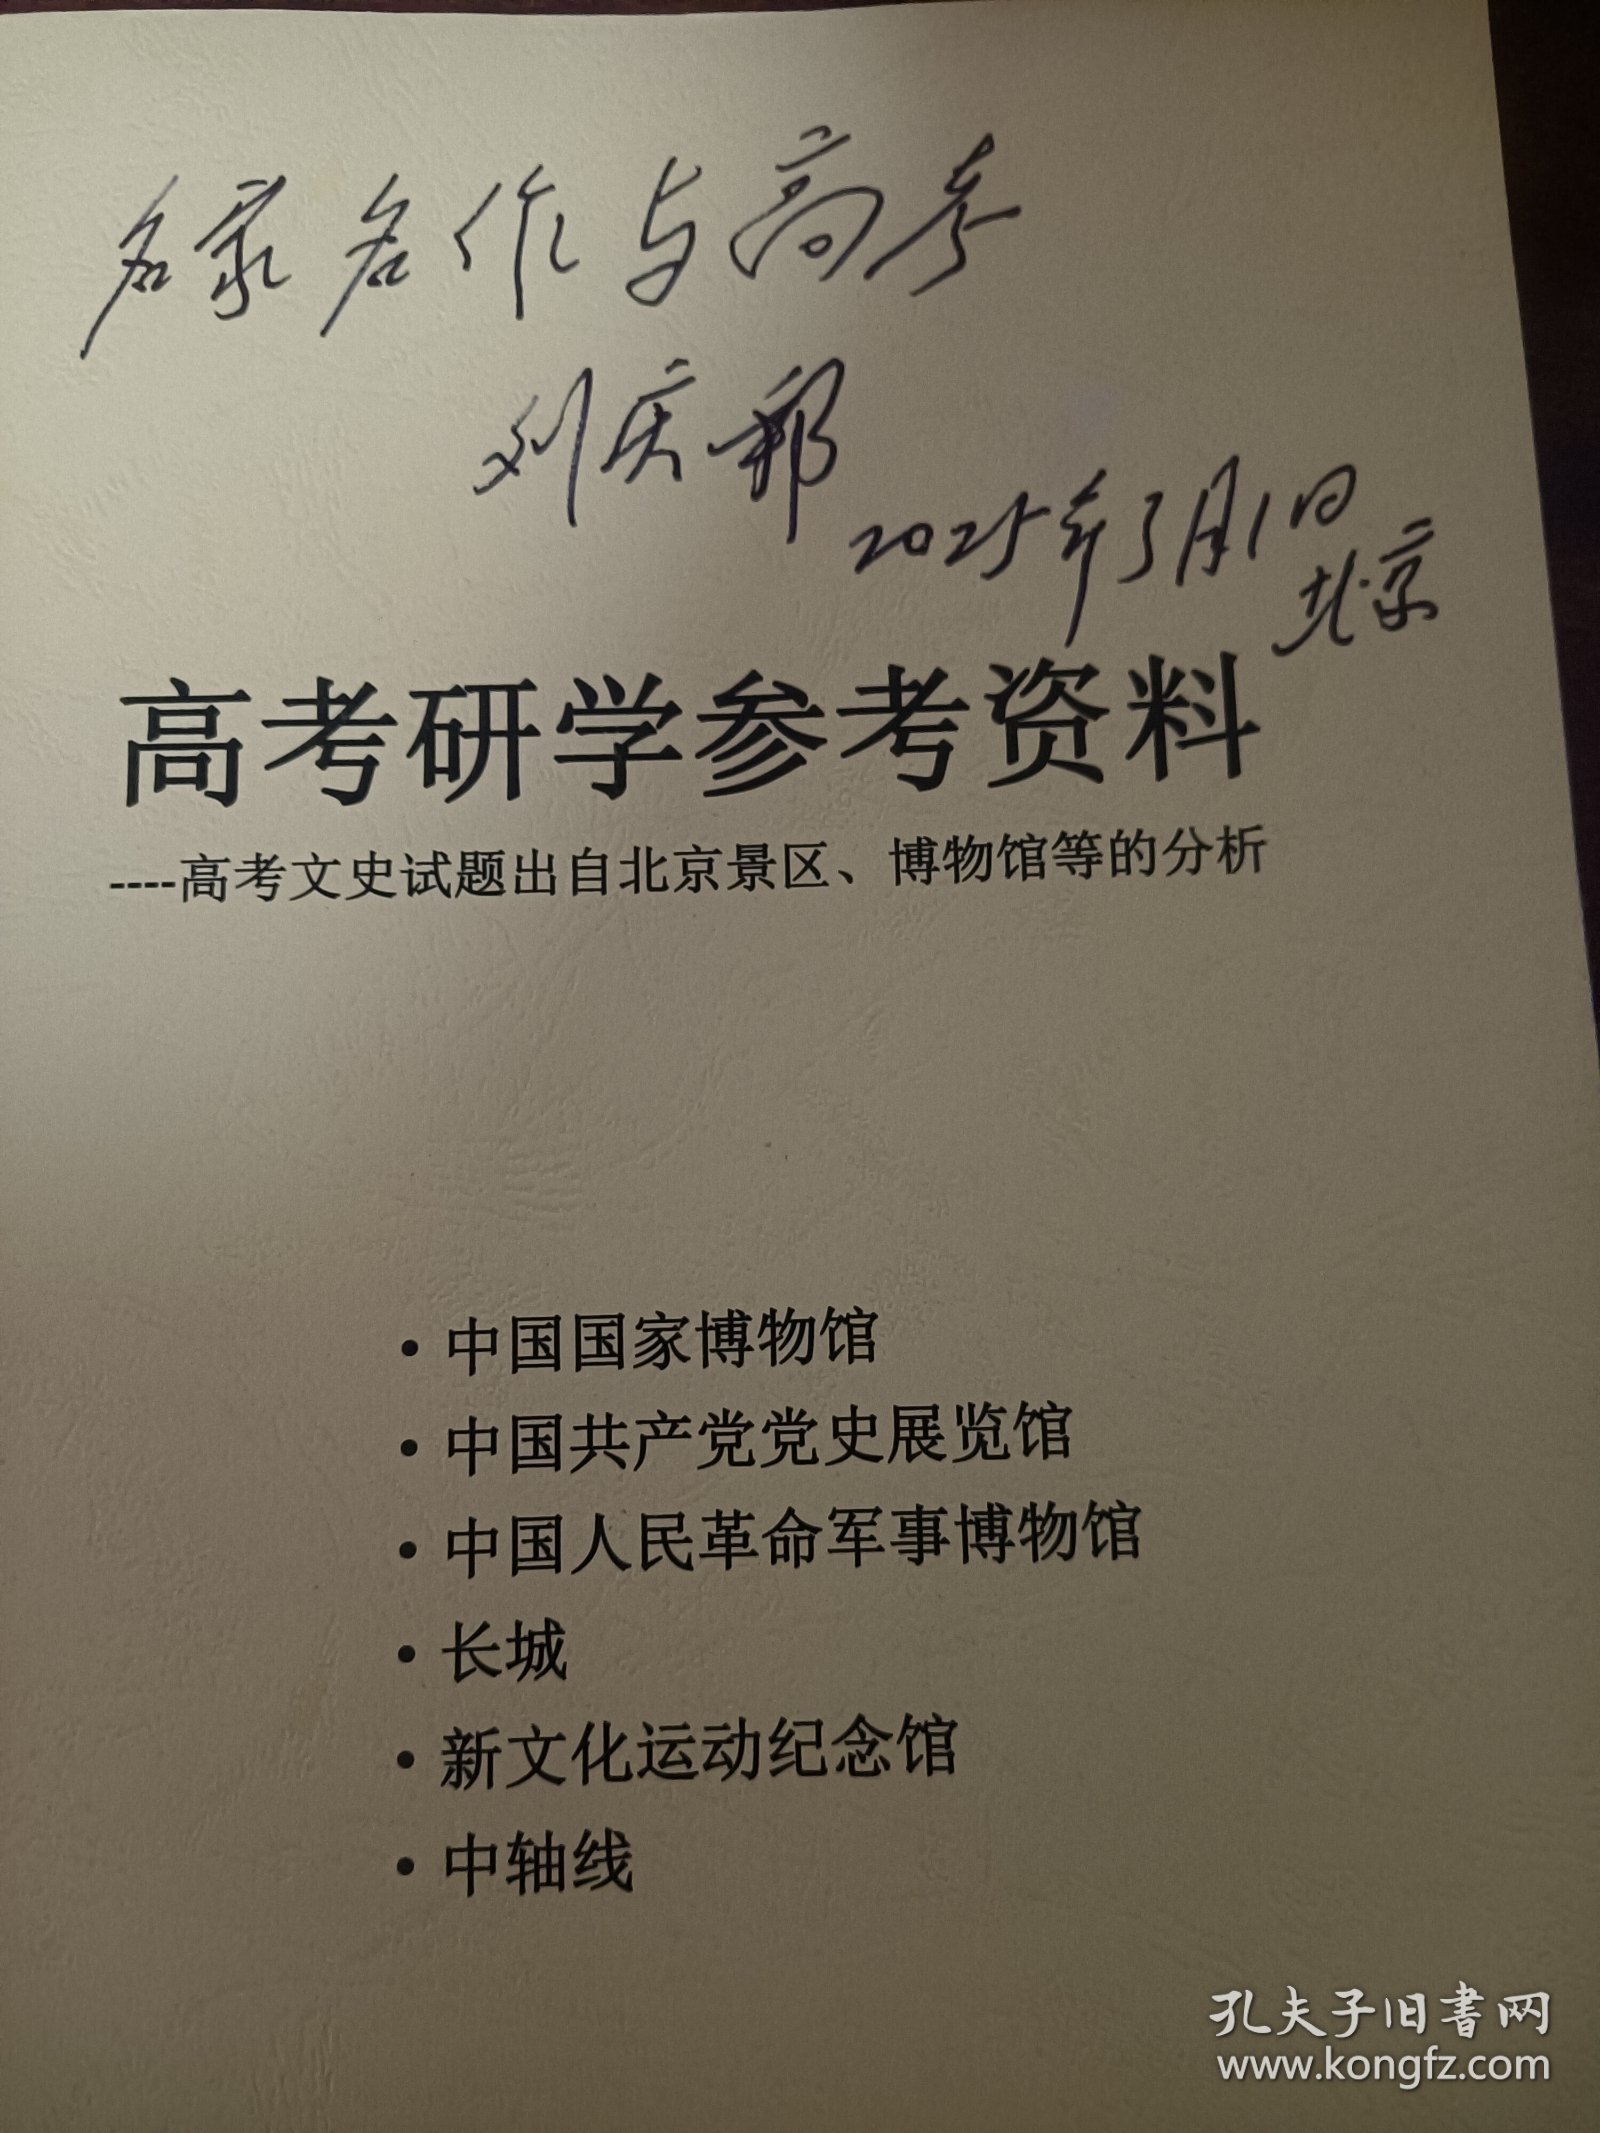 名家名作与高考
刘庆邦
2025年3月1日
北京
高考研学参考资料
----高考文史试题出自北京景区、博物馆等的分析
• 中国国家博物馆
• 中国共产党党史展览馆
• 中国人民革命军事博物馆
• 长城
• 新文化运动纪念馆
• 中轴线
孔夫子旧书网
www.kongfz.com